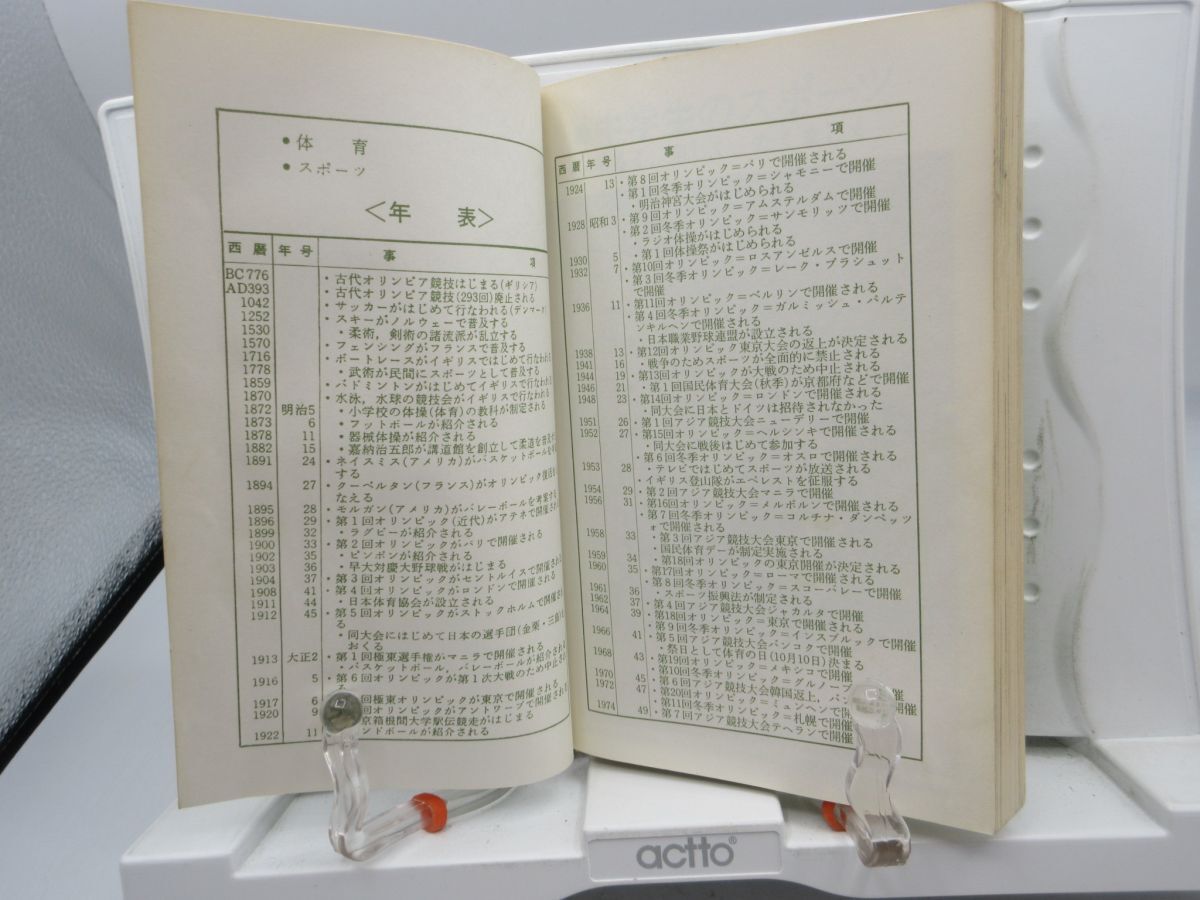 ・体 育
・スポーツ
＜年 表＞
西暦 年号 事 項
BC776 ・古代オリンピア競技はじまる(ギリシア)
AD393 ・古代オリンピア競技(293回)廃止される
1042 ・サッカーがはじめて行なわれる(デンマーク
1252 ・スキーがノルウェーで普及する
1530 ・柔術，剣術の諸流派が乱立する
1570 ・フェンシングがフランスで普及する
1716 ・ボートレースがイギリスではじめて行なわれる
1778 ・武術が民間にスポーツとして普及する
1859 ・バドミントンがはじめてイギリスで行なわれる
1870 ・水泳，水球の競技会がイギリスで行なわれる
1872 明治5 ・小学校の体操(体育)の教科が制定される
1873 6 ・フットボールが紹介される
1878 11 ・器械体操が紹介される
1882 15 ・嘉納治五郎が講道館を創立して柔道を普及す
1891 24 ・ネイスミス(アメリカ)がバスケットボールを
する
1894 27 ・クーベルタン(フランス)がオリンピック復活
なえる
1895 28 ・モルガン(アメリカ)がバレーボールを考案する
1896 29 ・第1回オリンピック(近代)がアテネで開催され
1899 32 ・ラグビーが紹介される
1900 33 ・第2回オリンピックがパリで開催される
1902 35 ・ピンポンが紹介される
1903 36 ・早大対慶大野球戦がはじまる
1904 37 ・第3回オリンピックがセントルイスで開催され
1908 41 ・第4回オリンピックがロンドンで開催される
1911 44 ・日本体育協会が設立される
1912 45 ・第5回オリンピックがストックホルムで開催され
る
・同大会にはじめて日本の選手団(金栗・三島)を
おくる
1913 大正2 ・第1回極東選手権がマニラで開催される
・バスケットボール，バレーボールが紹介され
1916 5 ・第6回オリンピックが第1次大戦のため中止され
る
1917 6 回極東オリンピックが東京で開催される
1920 9 回オリンピックがアントワープで開催される
京箱根間大学駅伝競走がはじまる
1922 11 ンドボールが紹介される
西暦 年号 事 項
1924 13 ・第8回オリンピック＝パリで開催される
・第1回冬季オリンピック＝シャモニーで開催
・明治神宮大会がはじめられる
1928 昭和3 ・第9回オリンピック＝アムステルダムで開催
・第2回冬季オリンピック＝サンモリッツで開催
・ラジオ体操がはじめられる
1930 5 ・第1回体操祭がはじめられる
1932 7 ・第10回オリンピック＝ロスアンゼルスで開催
・第3回冬季オリンピック＝レーク・プラシュット
で開催
1936 11 ・第11回オリンピック＝ベルリンで開催される
・第4回冬季オリンピック＝ガルミッシュ・パルテ
ンキルヘンで開催される
・日本職業野球連盟が設立される
1938 13 ・第12回オリンピック東京大会の返上が決定される
1941 16 ・戦争のためスポーツが全面的に禁止される
1944 19 ・第13回オリンピックが大戦のため中止される
1946 21 ・第1回国民体育大会(秋季)が京都府などで開催
1948 23 ・第14回オリンピック＝ロンドンで開催される
・同大会に日本とドイツは招待されなかった
1951 26 ・第1回アジア競技大会ニューデリーで開催
1952 27 ・第15回オリンピック＝ヘルシンキで開催される
・同大会に戦後はじめて参加する
・第6回冬季オリンピック＝オスロで開催される
1953 28 ・テレビではじめてスポーツが放送される
・イギリス登山隊がエベレストを征服する
1954 29 ・第2回アジア競技大会マニラで開催
1956 31 ・第16回オリンピック＝メルボルンで開催される
・第7回冬季オリンピック＝コルチナ・ダンペッツ
ォで開催される
1958 33 ・第3回アジア競技大会東京で開催される
・国民体育デーが制定実施される
1959 34 ・第18回オリンピックの東京開催が決定される
1960 35 ・第17回オリンピック＝ローマで開催される
・第8回冬季オリンピック＝スコーバレーで開催
1961 36 ・スポーツ振興法が制定される
1962 37 ・第4回アジア競技大会ジャカルタで開催
1964 39 ・第18回オリンピック＝東京で開催される
・第9回冬季オリンピック＝インスブルックで開催
1966 41 ・第5回アジア競技大会バンコクで開催
・祭日として体育の日(10月10日)決まる
1968 43 ・第19回オリンピック＝メキシコで開催
・第10回冬季オリンピック＝グルノーブ 開催
45 ・第6回アジア競技大会韓国返上，バ 開催
1972 47 ・第20回オリンピック＝ミュンヘンで 開催
・第11回冬季オリンピック＝札幌で開催
1974 49 ・第7回アジア競技大会テヘランで開催
actto®